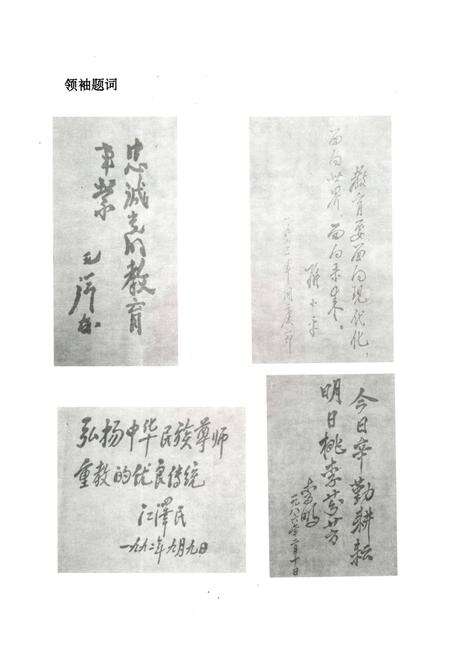 领袖题词
忠诚党的教育
事业
毛泽东
教育要面向现代化，
面向世界，面向未来。
邓小平
一九八三年国庆节
弘扬中华民族尊师
重教的优良传统
江泽民
一九九二年九月九日
今日辛勤耕耘
明日桃李芬芳
李鹏